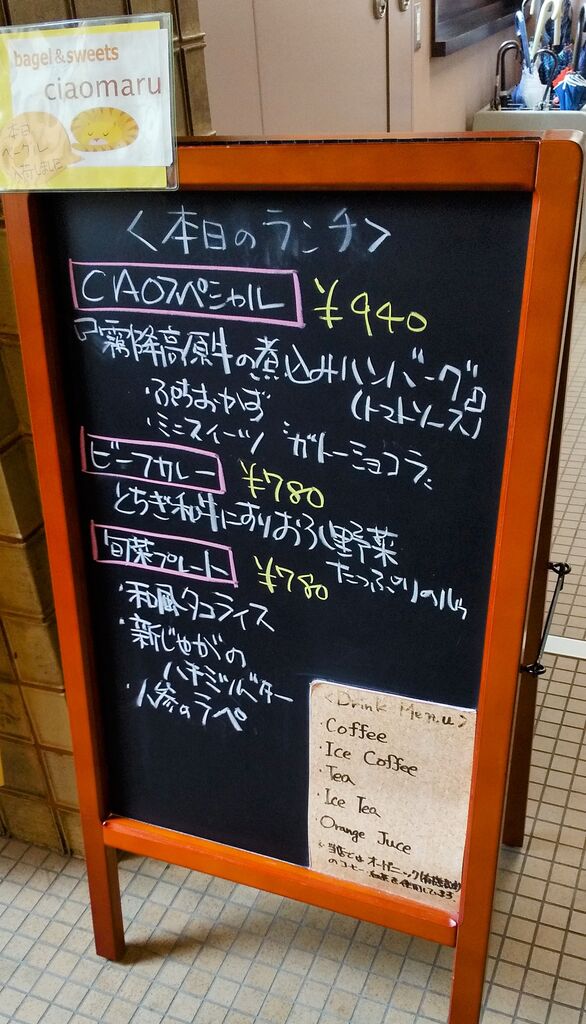 bagel & sweets
ciaomaru
本日
ベーグル
入荷しました
<本日のランチ>
CIAOスペシャル ¥940
霜降高原牛の煮込みハンバーグ
(トマトソース)
・ぷちおかず
・ミニスイーツ ガトーショコラ
ビーフカレー ¥780
とちぎ和牛にすりおろし野菜
たっぷりのルゥ
旬菜プレート ¥780
・和風タコライス
・新じゃがの
ハチミツバター
・人参のラペ
<Drink Menu>
・Coffee
・Ice Coffee
・Tea
・Ice Tea
・Orange Juce
当店では オーガニック(有機栽培)
のコーヒー 紅茶を使用しています